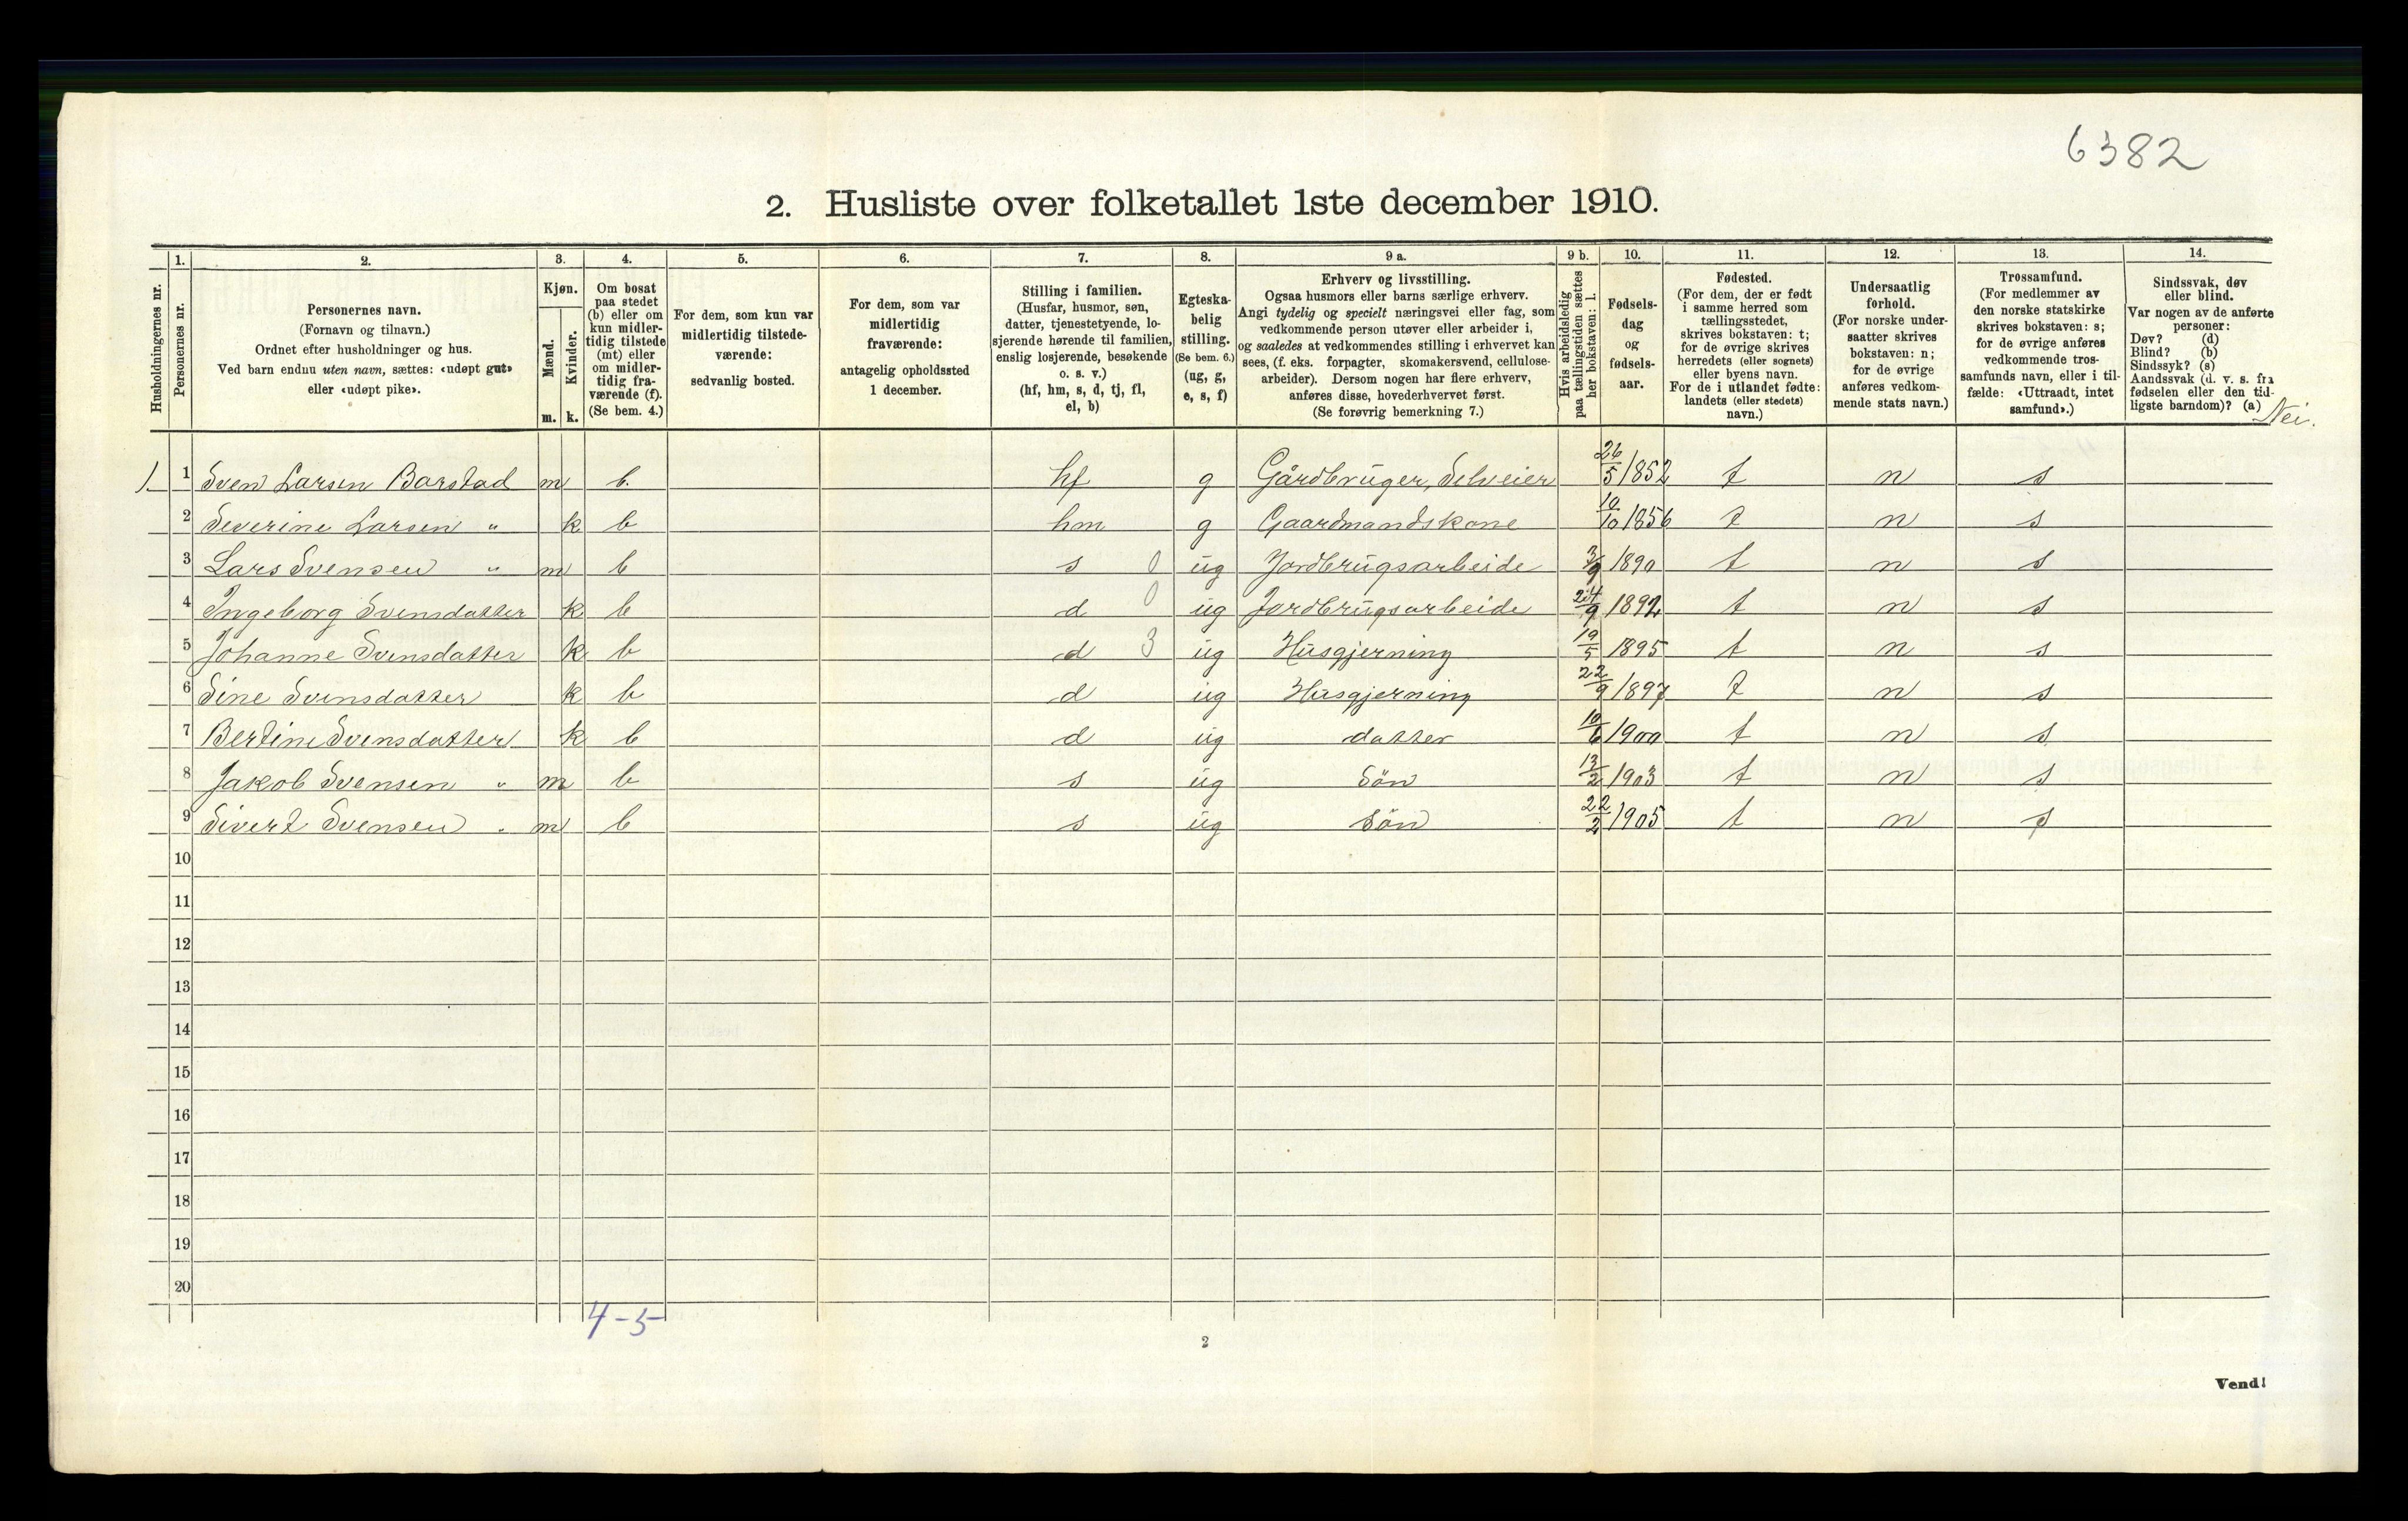 6382
2. Husliste over folketallet 1ste december 1910.
Husholdningernes nr.
1.
Personernes nr.
2.
Personernes navn.
(Fornavn og tilnavn.)
Ordnet efter husholdninger og hus.
Ved barn endnu uten navn, sættes: «udøpt gut»
eller «udøpt pike».
3.
Kjøn.
Mænd.
Kvinder.
m. k.
4.
Om bosat
paa stedet
(b) eller om
kun midler-
tidig tilstede
(mt) eller
om midler-
tidig fra-
værende (f).
(Se bem. 4.)
5.
For dem, som kun var
midlertidig tilstede-
værende:
sedvanlig bosted.
6.
For dem, som var
midlertidig
fraværende:
antagelig opholdssted
1 december.
7.
Stilling i familien.
(Husfar, husmor, søn,
datter, tjenestetyende, lo-
sjerende hørende til familien,
enslig losjerende, besøkende
o. s. v.)
(hf, hm, s, d, tj, fl,
el, b)
8.
Egteska-
belig
stilling.
(Se bem. 6.)
(ug, g,
e, s, f)
9 a.
Erhverv og livsstilling.
Ogsaa husmors eller barns særlige erhverv.
Angi tydelig og specielt næringsvei eller fag, som
vedkommende person utøver eller arbeider i,
og saaledes at vedkommendes stilling i erhvervet kan
sees, (f. eks. forpagter, skomakersvend, cellulose-
arbeider). Dersom nogen har flere erhverv,
anføres disse, hovederhvervet først.
(Se forøvrig bemerkning 7.)
9 b.
Hvis arbeidsledig
paa tællingstiden sættes
her bokstaven: l.
10.
Fødsels-
dag
og
fødsels-
aar.
11.
Fødested.
(For dem, der er født
i samme herred som
tællingsstedet,
skrives bokstaven: t;
for de øvrige skrives
herredets (eller sognets)
eller byens navn.
For de i utlandet fødte:
landets (eller stedets)
navn.)
12.
Undersaatlig
forhold.
(For norske under-
saatter skrives
bokstaven: n;
for de øvrige
anføres vedkom-
mende stats navn.)
13.
Trossamfund.
(For medlemmer av
den norske statskirke
skrives bokstaven: s;
for de øvrige anføres
vedkommende tros-
samfunds navn, eller i til-
fælde: «Uttraadt, intet
samfund».)
14.
Sindssvak, døv
eller blind.
Var nogen av de anførte
personer:
Døv? (d)
Blind? (b)
Sindssyk? (s)
Aandssvak (d. v. s. fra
fødselen eller den tid-
ligste barndom)? (a)
Nei.
1. 1 Sven Larsen Barstad m b. hf g Gårdbruger, Selveier 26/5 1852 t n s
2 Severine Larsen " k b hm g Gaardmandskone 10/10 1856 t n s
3 Lars Svensen " m b s 0 ug Jordbrugsarbeide 3/9 1890 t n s
4 Ingeborg Svensdatter k b d 0 ug Jordbrugsarbeide 24/9 1892 t n s
5 Johanne Svensdatter k b d 3 ug Husgjerning 19/5 1895 t n s
6 Sine Svensdatter k b d ug Husgjerning 22/9 1897 t n s
7 Bertine Svensdatter k b d ug datter 10/6 1900 t n s
8 Jakob Svensen " m b s ug Sön 13/2 1903 t n s
9 Sivert Svensen " m b s ug Sön 22/2 1905 t n s
10
11
12
13
14
15
16
17
18
19
20
4-5
2
Vend!